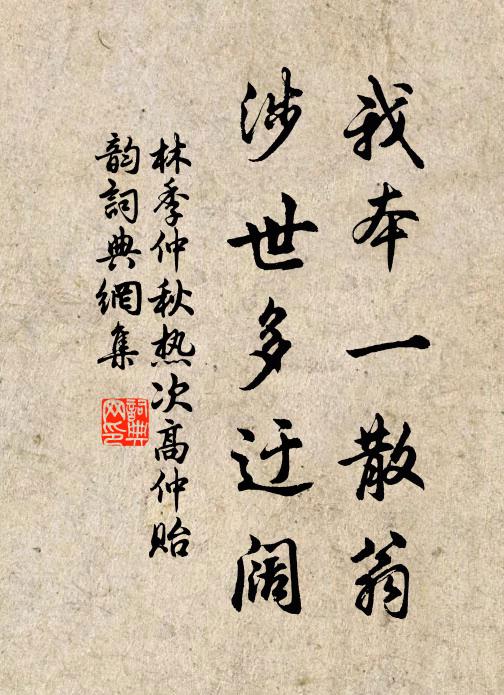 我本一散翁
涉世多迂阔
林季仲秋热次高仲贻
韵词典网集
詞典
网印